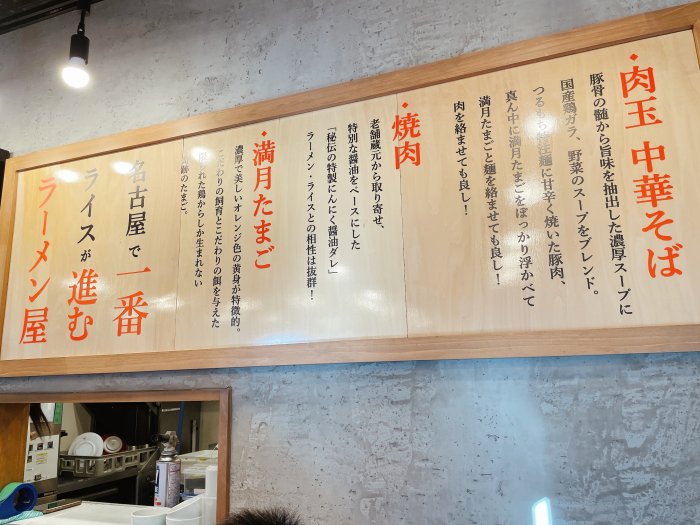 ・肉玉 中華そば
豚骨の髄から旨味を抽出した濃厚スープに
国産鶏ガラ、野菜のスープをブレンド。
つるもち特注麺に甘辛く焼いた豚肉、
真ん中に満月たまごをぽっかり浮かべて
満月たまごと麺を絡ませても良し!
肉を絡ませても良し!
・焼肉
老舗蔵元から取り寄せ、
特別な醤油をベースにした
「秘伝の特製にんにく醤油ダレ」
ラーメン・ライスとの相性は抜群!
・満月たまご
濃厚で美しいオレンジ色の黄身が特徴的。
こだわりの飼育とこだわりの餌を与えた
れた鶏からしか生まれない
跡のたまご。
名古屋で一番
ライスが進む
ラーメン屋